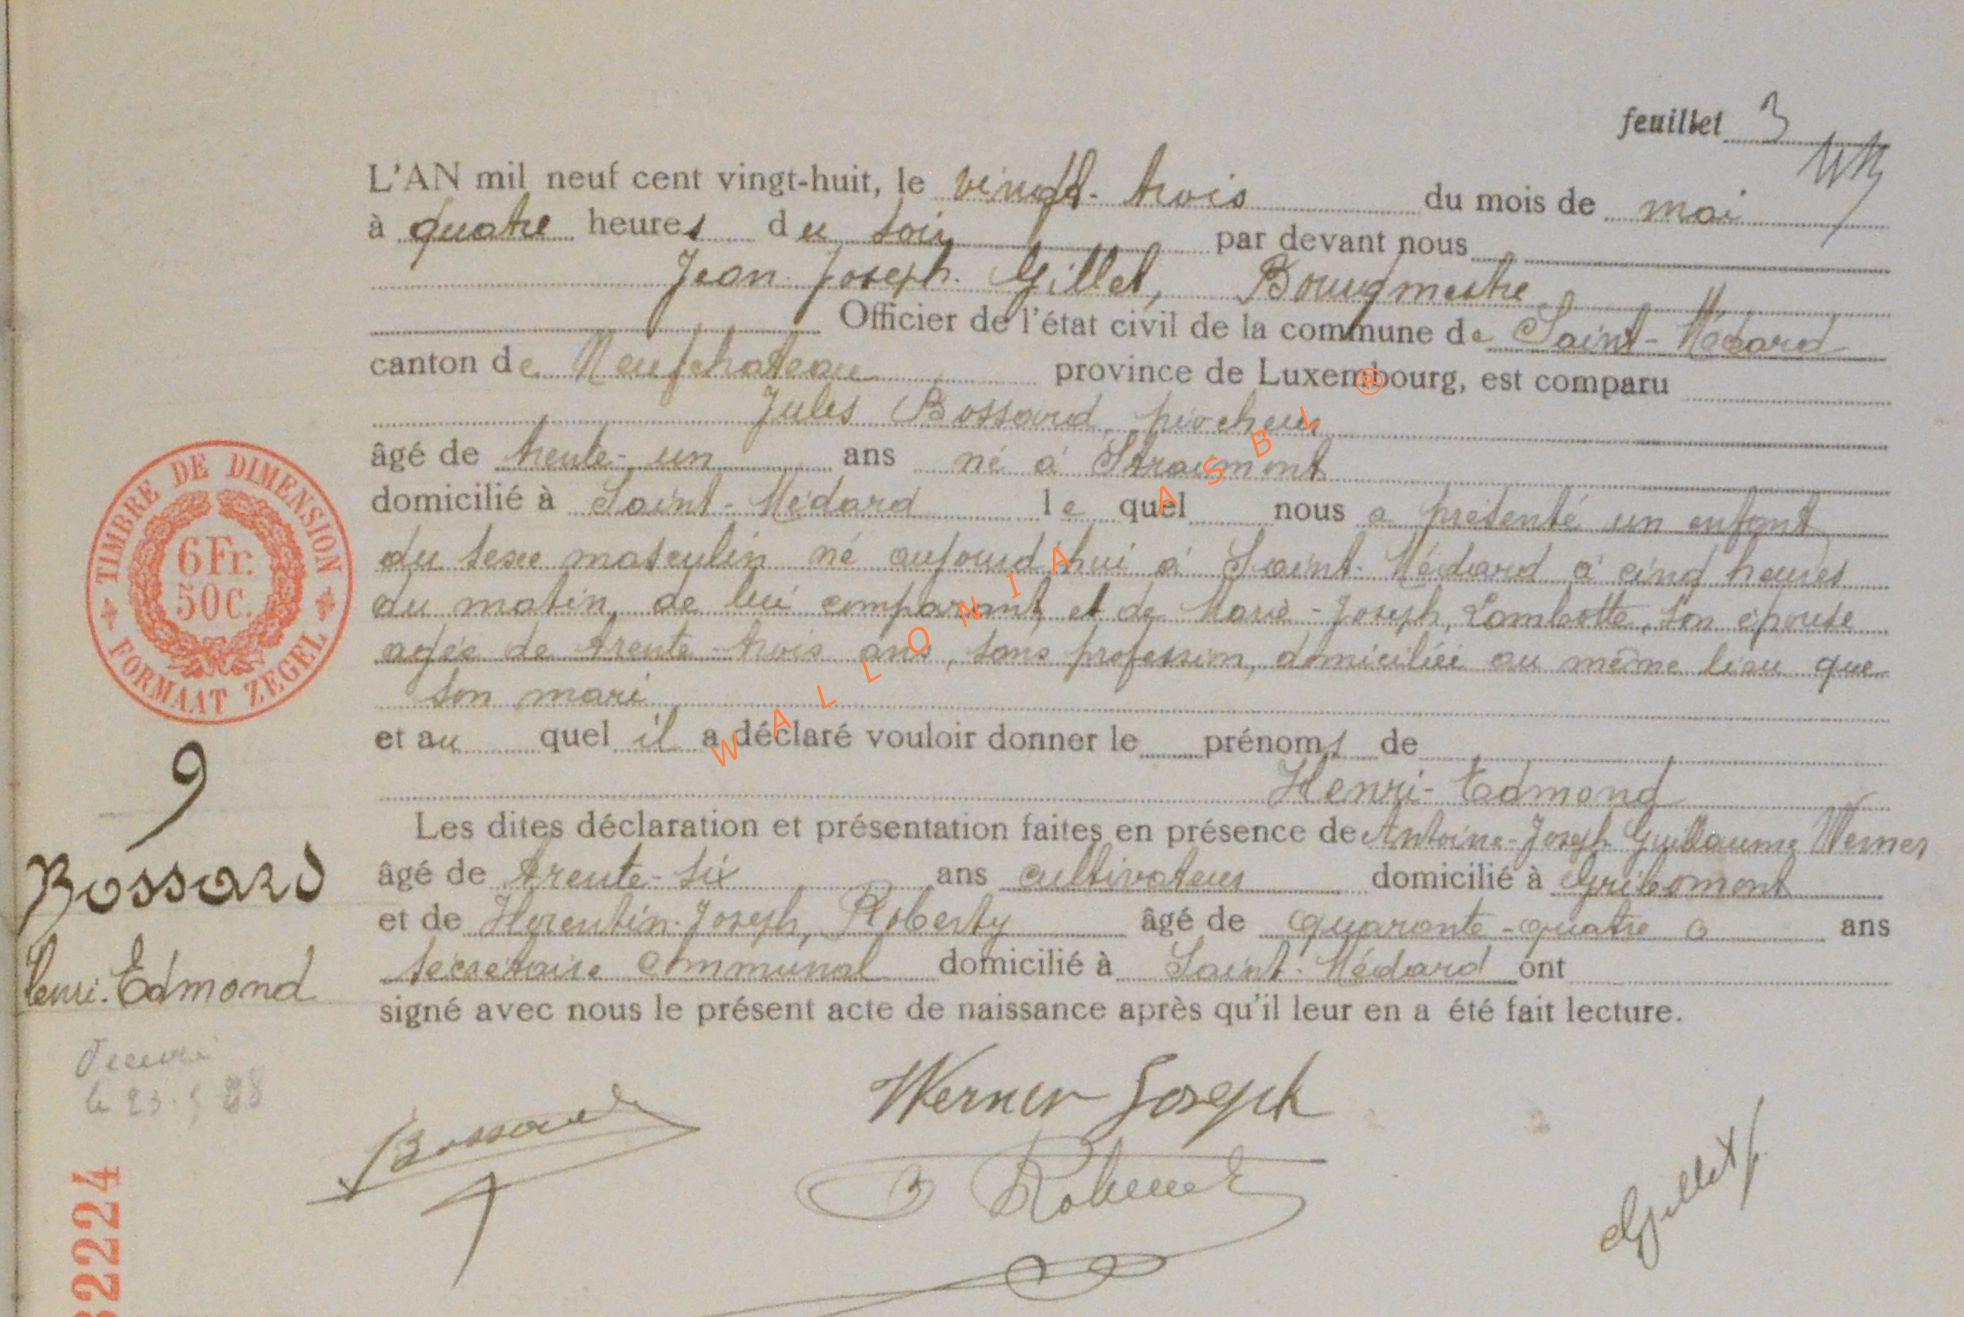 feuillet 3
L'AN mil neuf cent vingt-huit, le vingt-trois du mois de mai
à quatre heures du soir par devant nous
Jean Joseph Gillet, Bourgmestre
Officier de l'état civil de la commune de Saint-Médard
canton de Neufchateau province de Luxembourg, est comparu
Jules Bossard, piocheur
âgé de trente-un ans né à Straimont
domicilié à Saint-Médard le quel nous a présenté un enfant
du sexe masculin né aujourd'hui à Saint-Médard à cinq heures
du matin, de lui comparant et de Marie-Joseph, Lambotte, son épouse
agée de trente-trois ans, sans profession, domiciliée au même lieu que
son mari
et au quel il a déclaré vouloir donner le prénoms de
Henri-Edmond
Les dites déclaration et présentation faites en présence de Antoine-Joseph Guillaume Werner
âgé de trente-six ans cultivateur domicilié à Gribomont
et de Florentin-Joseph, Roberty âgé de quarante-quatre ans
secrétaire communal domicilié à Saint-Médard ont
signé avec nous le présent acte de naissance après qu'il leur en a été fait lecture.
TIMBRE DE DIMENSION
6 Fr.
50 C.
FORMAAT ZEGEL
9
Bossard
Henri-Edmond
le 23.5 28
Bossard
Werner Joseph
Gillet J.
32224
WALLONIA ASBL ®